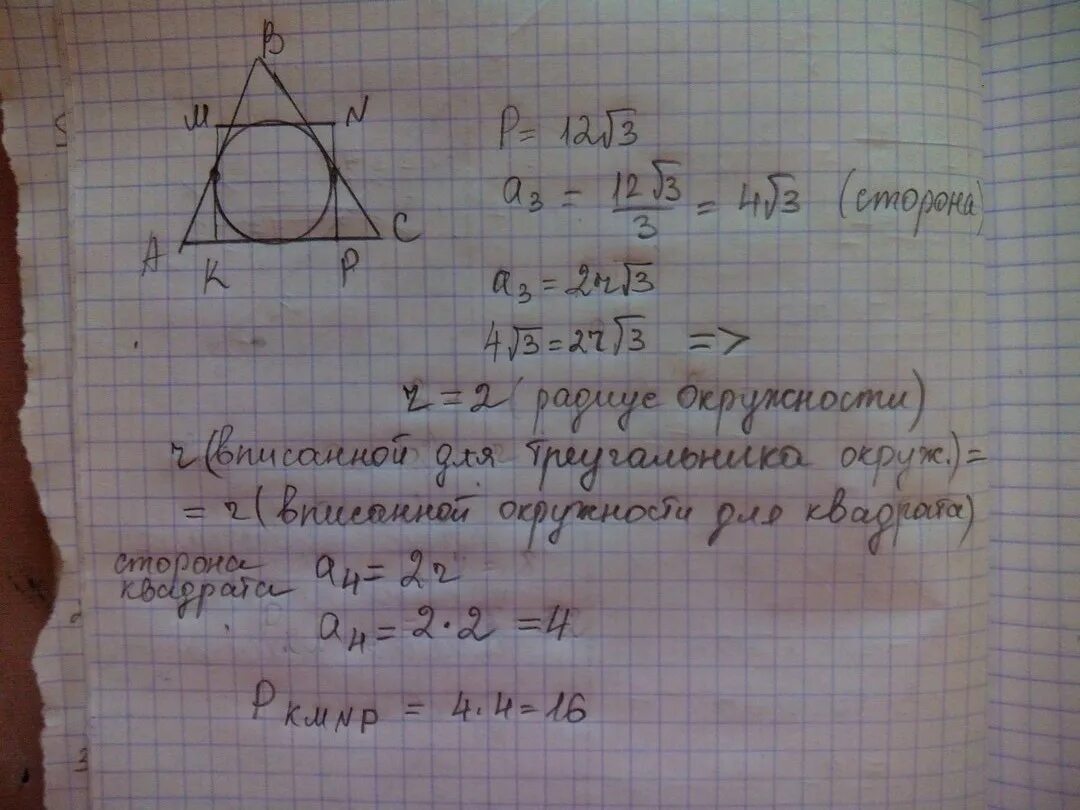 B
M N
A K P C
P = 12√3
a₃ = 12√3/3 = 4√3 (сторона)
a₃ = 2r√3
4√3 = 2r√3 =>
r = 2 (радиус окружности)
r (вписанной для треугальника окруж.) =
= r (вписанной окружности для квадрата)
сторона квадрата a₄ = 2r
a₄ = 2·2 = 4
P KMNP = 4·4 = 16